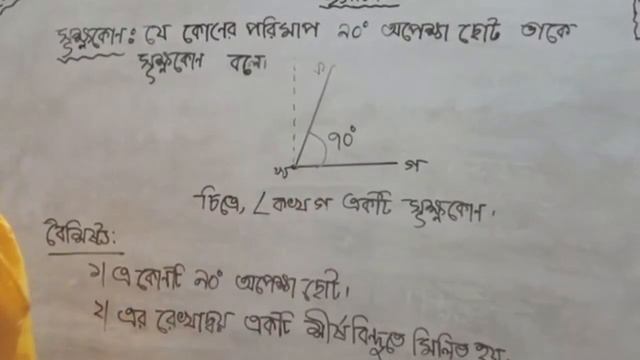 সূক্ষ্মকোন: যে কোনের পরিমাপ ৯০° অপেক্ষা ছোট তাকে
সূক্ষ্মকোন বলে।
৭০°
গ
চিত্রে, ∠কখগ একটি সূক্ষ্মকোন।
বৈশিষ্ট্য:
১) এ কোনটি ৯০° অপেক্ষা ছোট।
২) এর রেখাদ্বয় একটি শীর্ষ বিন্দুতে মিলিত হয়